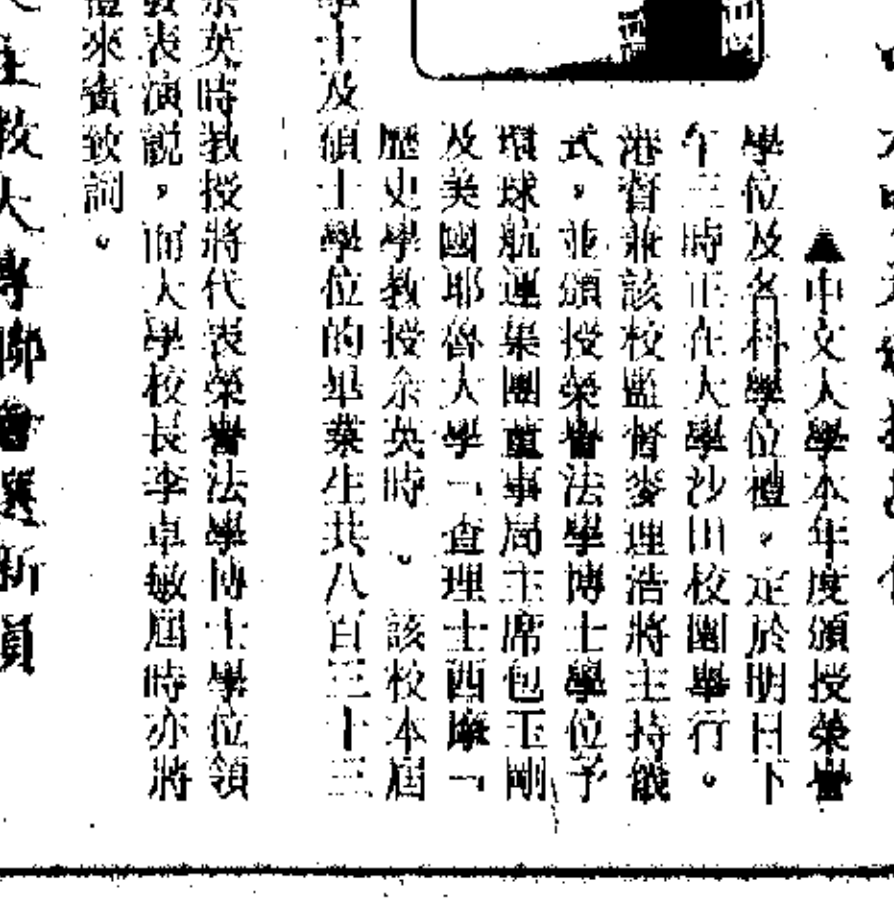 ▲中文大學本年度頒授榮譽
學位及各科學位禮,定於明日下
午三時正在大學沙田校園舉行。
港督兼該校監督麥理浩將主持儀
式,並頒授榮譽法學博士學位予
環球航運集團董事局主席包玉剛
及美國耶魯大學「查理士西摩「
歷史學教授余英時。該校本屆
學士及碩士學位的畢業生共八百三十三
余英時教授將代表榮譽法學博士學位領
發表演說,而大學校長李卓敏屆時亦將
禮來賓致詞。
主教大專聯會選新員